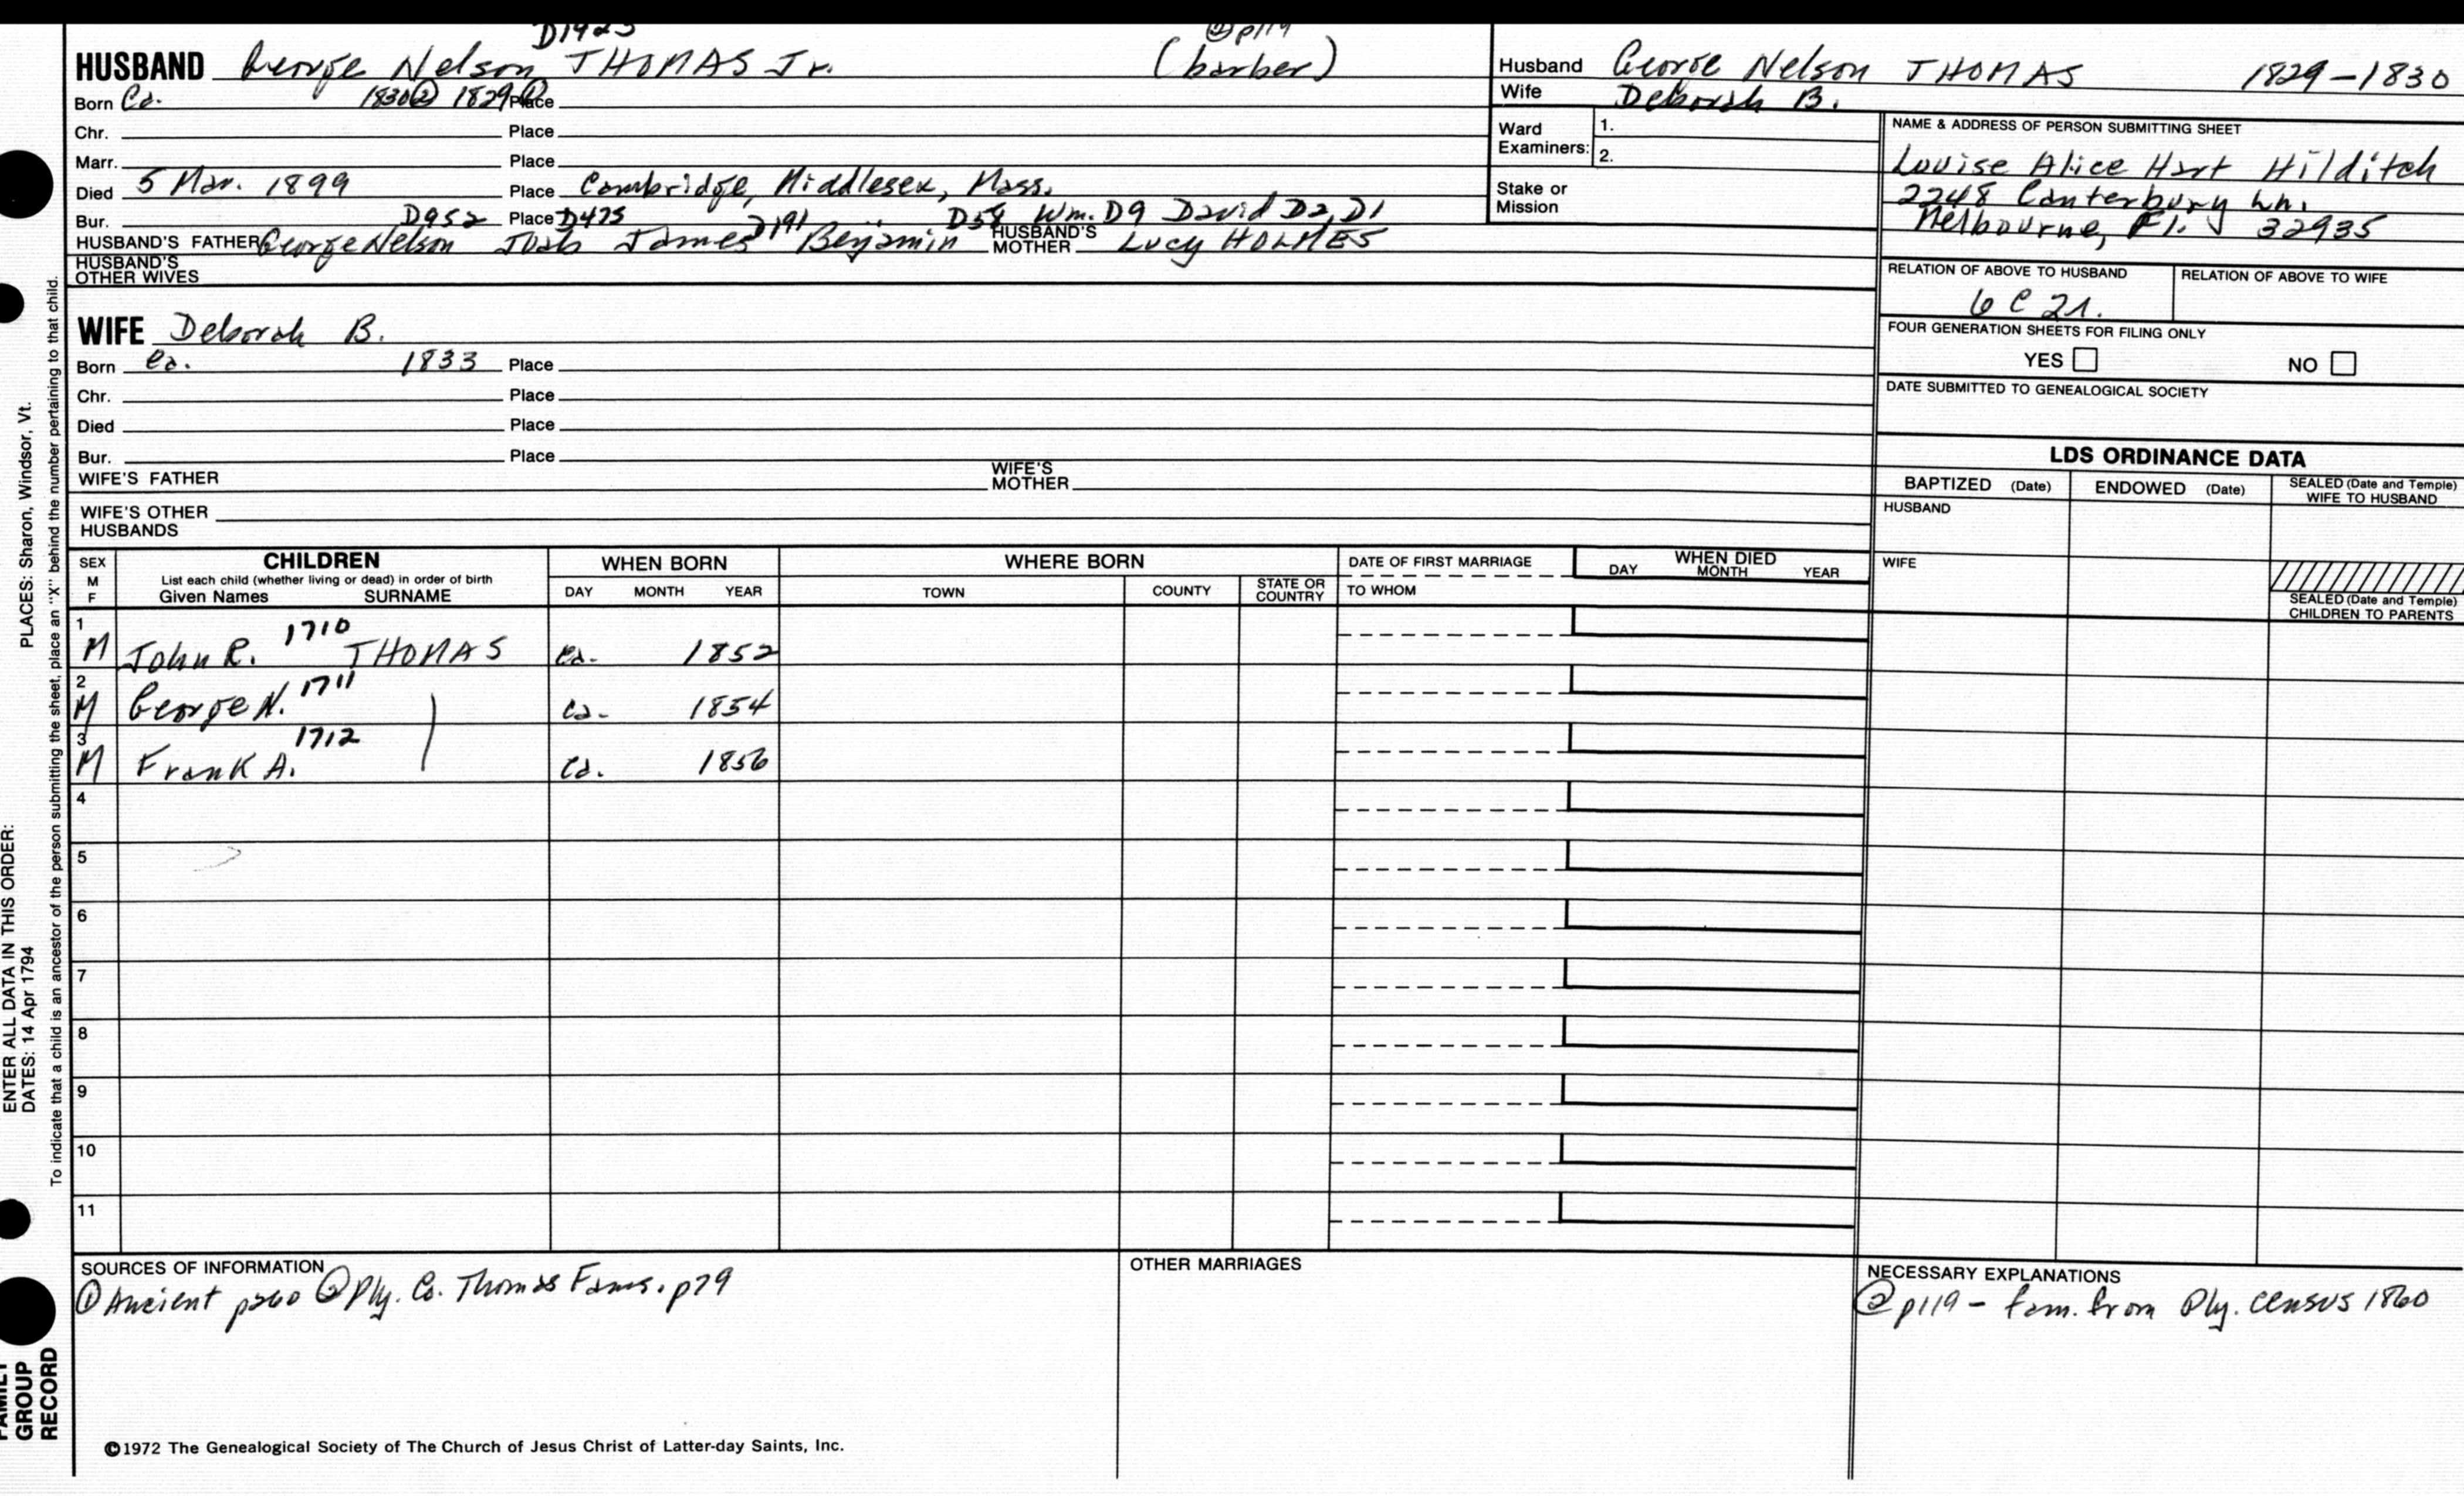 D1923
② p119
HUSBAND George Nelson THOMAS Jr. (barber)
Born Ca. 1830② 1829① Place
Chr. Place
Marr. Place
Died 5 Mar. 1899 Place Cambridge, Middlesex, Mass.
Bur. D952 Place D475 D191 D58 Wm. D9 David D2, D1
HUSBAND'S FATHER George Nelson James Benjamin HUSBAND'S MOTHER Lucy HOLMES
HUSBAND'S OTHER WIVES
WIFE Deborah B.
Born Ca. 1833 Place
Chr. Place
Died Place
Bur. Place
WIFE'S FATHER WIFE'S MOTHER
WIFE'S OTHER HUSBANDS
Husband George Nelson THOMAS 1829-1830
Wife Deborah B.
Ward Examiners: 1.
2.
Stake or Mission
NAME & ADDRESS OF PERSON SUBMITTING SHEET
Louise Alice Hart Hilditch
2248 Canterbury Ln.
Melbourne, Fl. 32935
RELATION OF ABOVE TO HUSBAND RELATION OF ABOVE TO WIFE
6 C 2r.
FOUR GENERATION SHEETS FOR FILING ONLY
YES NO
DATE SUBMITTED TO GENEALOGICAL SOCIETY
LDS ORDINANCE DATA
BAPTIZED (Date) ENDOWED (Date) SEALED (Date and Temple) WIFE TO HUSBAND
HUSBAND
WIFE
SEALED (Date and Temple) CHILDREN TO PARENTS
SEX M F
CHILDREN
List each child (whether living or dead) in order of birth
Given Names SURNAME
WHEN BORN
DAY MONTH YEAR
WHERE BORN
TOWN COUNTY STATE OR COUNTRY
DATE OF FIRST MARRIAGE
TO WHOM
WHEN DIED
DAY MONTH YEAR
1 M John R. 1710 THOMAS Ca. 1852
2 M George N. 1711 Ca. 1854
3 M Frank A. 1712 Ca. 1856
4
5
6
7
8
9
10
11
SOURCES OF INFORMATION
① Ancient p260 ② Ply. Co. Thomas Fams. p79
OTHER MARRIAGES
NECESSARY EXPLANATIONS
② p119 - fam. from Ply. census 1860
©1972 The Genealogical Society of The Church of Jesus Christ of Latter-day Saints, Inc.
ENTER ALL DATA IN THIS ORDER:
DATES: 14 Apr 1794 PLACES: Sharon, Windsor, Vt.
To indicate that a child is an ancestor of the person submitting the sheet, place an "X" behind the number pertaining to that child.
FAMILY
GROUP
RECORD